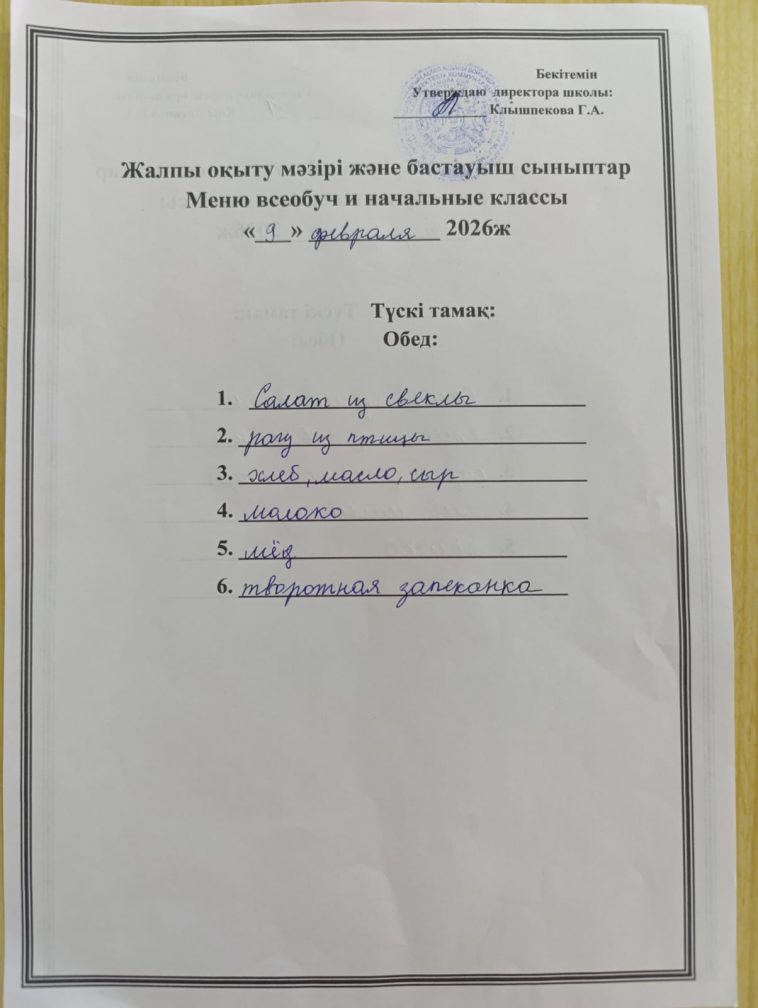 Бекітемін
Утверждаю директора школы:
Клышпекова Г.А.
Жалпы оқыту мәзірі және бастауыш сыныптар
Меню всеобуч и начальные классы
« 9 » февраля 2026ж
Түскі тамақ:
Обед:
1. Салат из свеклы
2. рагу из птицы
3. хлеб, масло, сыр
4. молоко
5. мёд
6. творотная запеканка